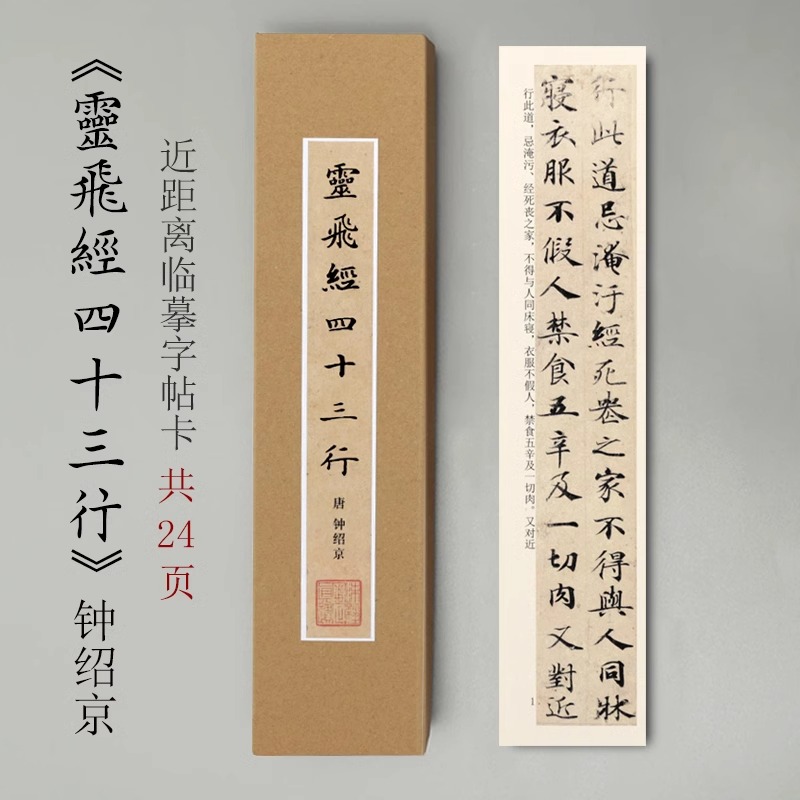 《靈飛經四十三行》钟绍京
近距离临摹字帖卡 共24页
靈飛經四十三行
唐 钟绍京
行此道忌淹汙經死喪之家不得與人同牀
寢衣服不假人禁食五辛及一切肉又對近
行此道，忌淹污、经死丧之家，不得与人同床寝，衣服不假人，禁食五辛及一切肉。又对近
1